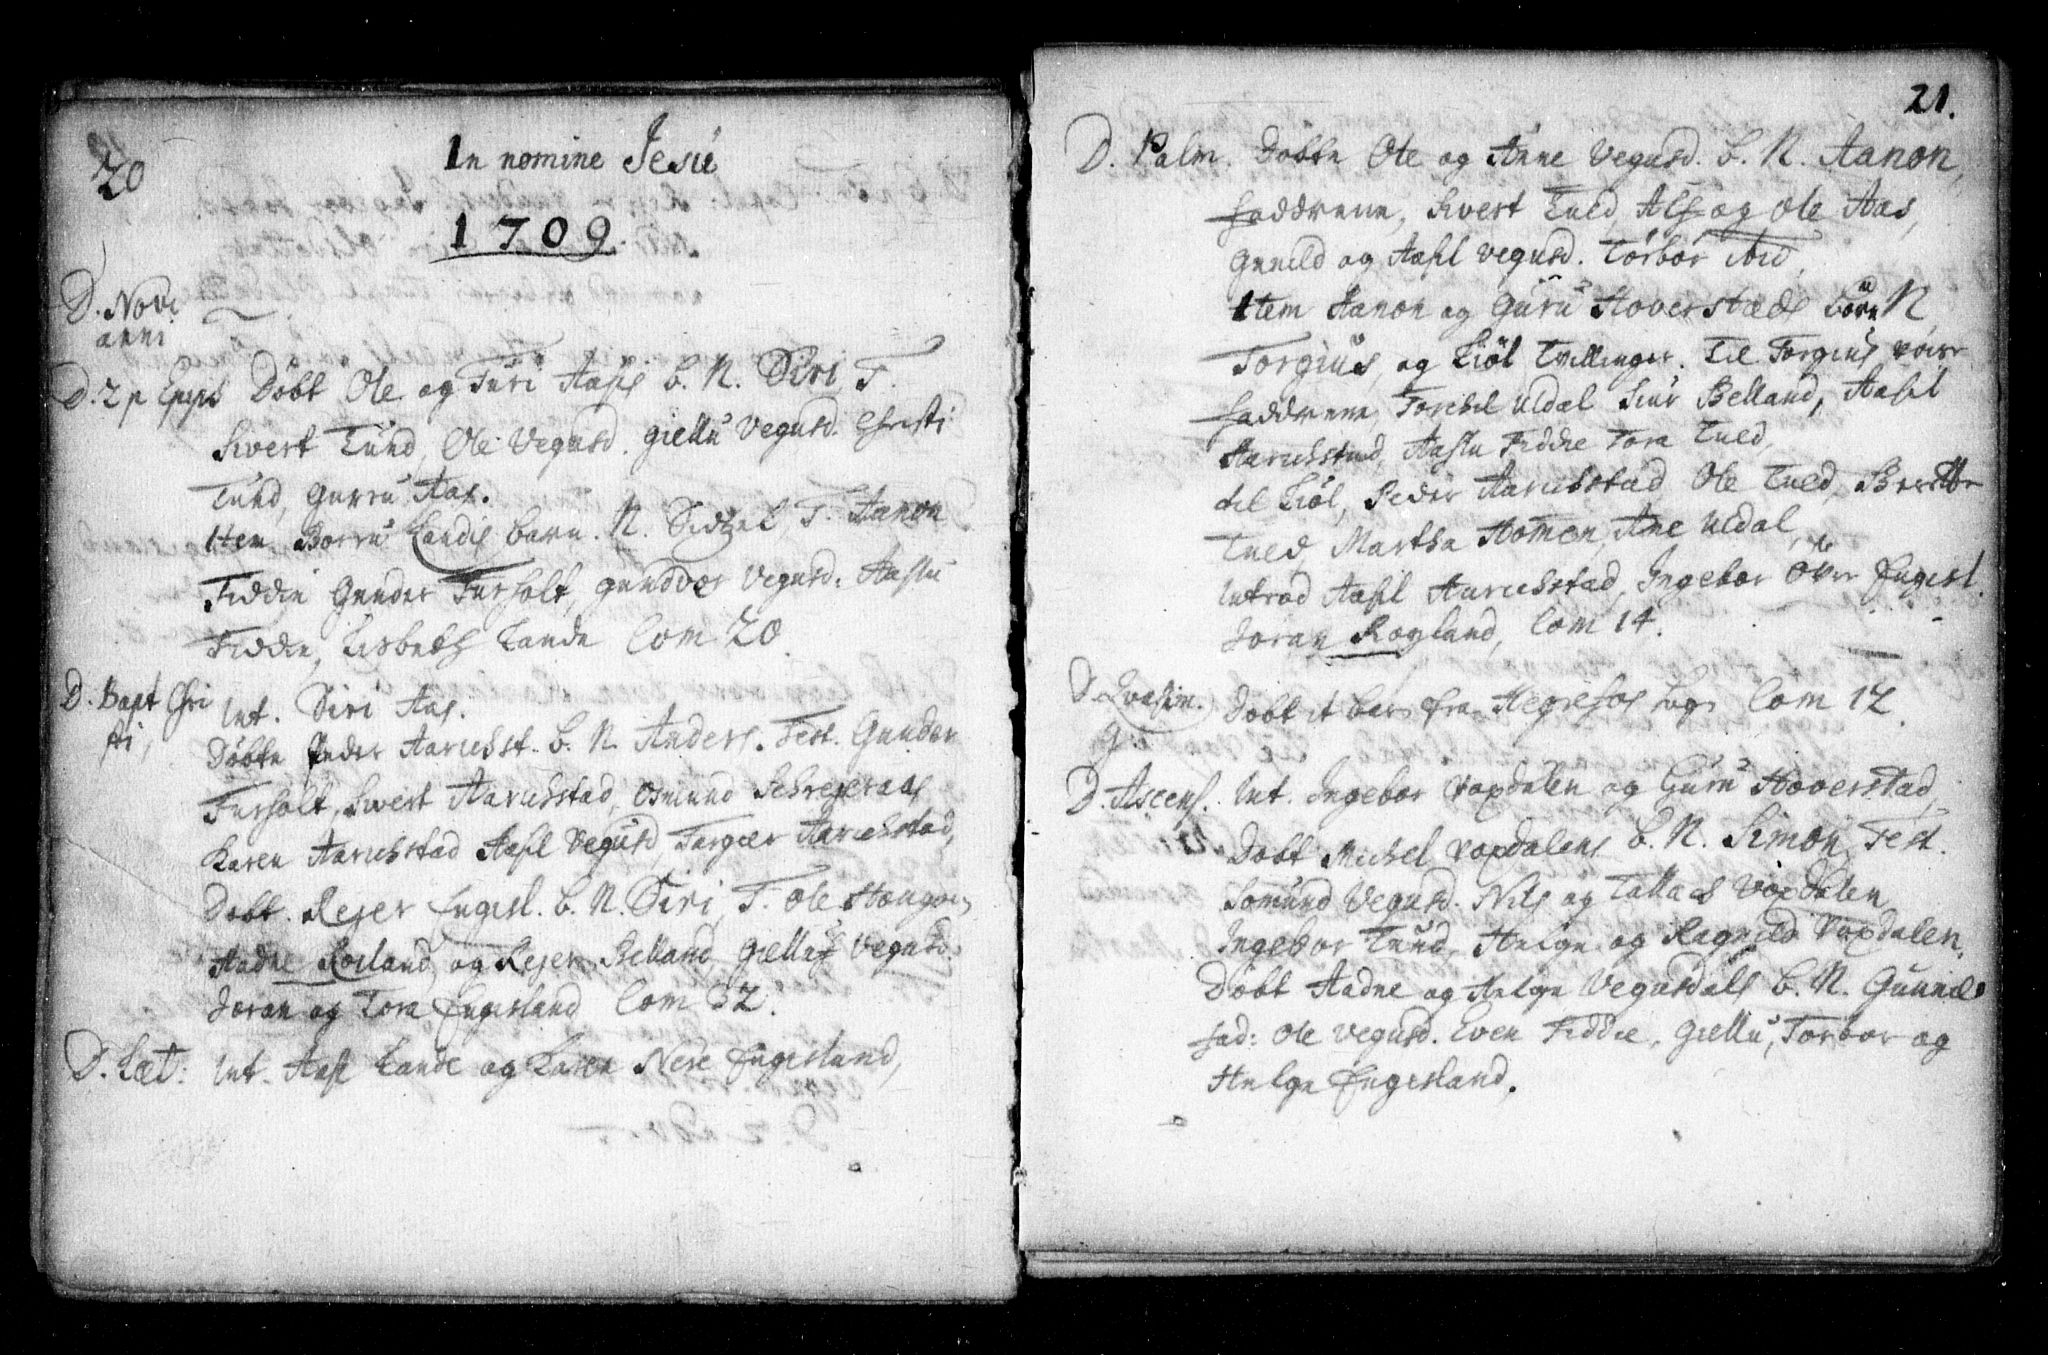 20
In nomine Jesu
1709.
D. Novi
anni
D. 2 p Epiph Dobt Ole og Turi Aas's b. N. Siri, T.
Sivert Tuud, Ole Vegusd. giellu Vegusd. Christi
Tuud, Gurru Aas.
Item Borru Landis barn. N. Sidzel, T. Aanon
Fiddie Gunder Furholt, gundvor Vegusd. Aaslu
Fiddie, Lisbeth Lande Com 20.
D. Bapt Chri Int. Siri Aas.
sti, Döbte Peder Aarichst. b. N. Anders. Test. Gunder
Furholt, Sivert Aarichstad, Osmund Schrejeraas
Karen Aarichstad Aasil Vegusd, Torgier Aarichstad,
Dobt. Rejer Engesl. b. N. Siri, T. Ole Haugen,
Aadne Roeland, og Rejer Belland, Giellug Vegusd.
Joran og Tora Engesland Com 32.
D. Læt: Int. Aasil Lande og Karen Nere Engesland,
21.
D. Palm. Dobte Ole og Anne Vegusd. b. N. Aanon,
faddrene, Sivert Tuld, Alf og Ole Aas,
Gunild og Aasil vegusd. Torbor ibid.
Item Aanon og Guru Hoverstads börn N
Torgius, og Kiöl Tvillinger. Til Torgius vare
faddrene, Torchil Uldal Siur Belland, Aasil
Aarichstad, Aaslu Fiddie Tora Tuld,
til Kiöl, Peder Aarichstad Ole Tuld, Berette
Tuld, Martha Homen, Ane Uldal,
Introd Aasil Aarichstad, Ingebor Over Engesl.
Joran Rogland, Com 14.
D. Qvasim. Dobt it barn fra Hegrefos Com 12.
g.
D. Ascens. Int. Ingebor Vaxdalen og Guru Hoverstad,
Dobt Michel Vaxdalens b. N. Simon, Test.
Somund Vegusd. Nils og Tallach Vaxdalen
Ingebor Tuud, Helge og Ragnild Vaxdalen.
Döbt Aadne og Helge Vegusdals b. N. Gunnild
fad: Ole vegusd. Even Fiddie, giellu, Torbor og
Helge Engesland.